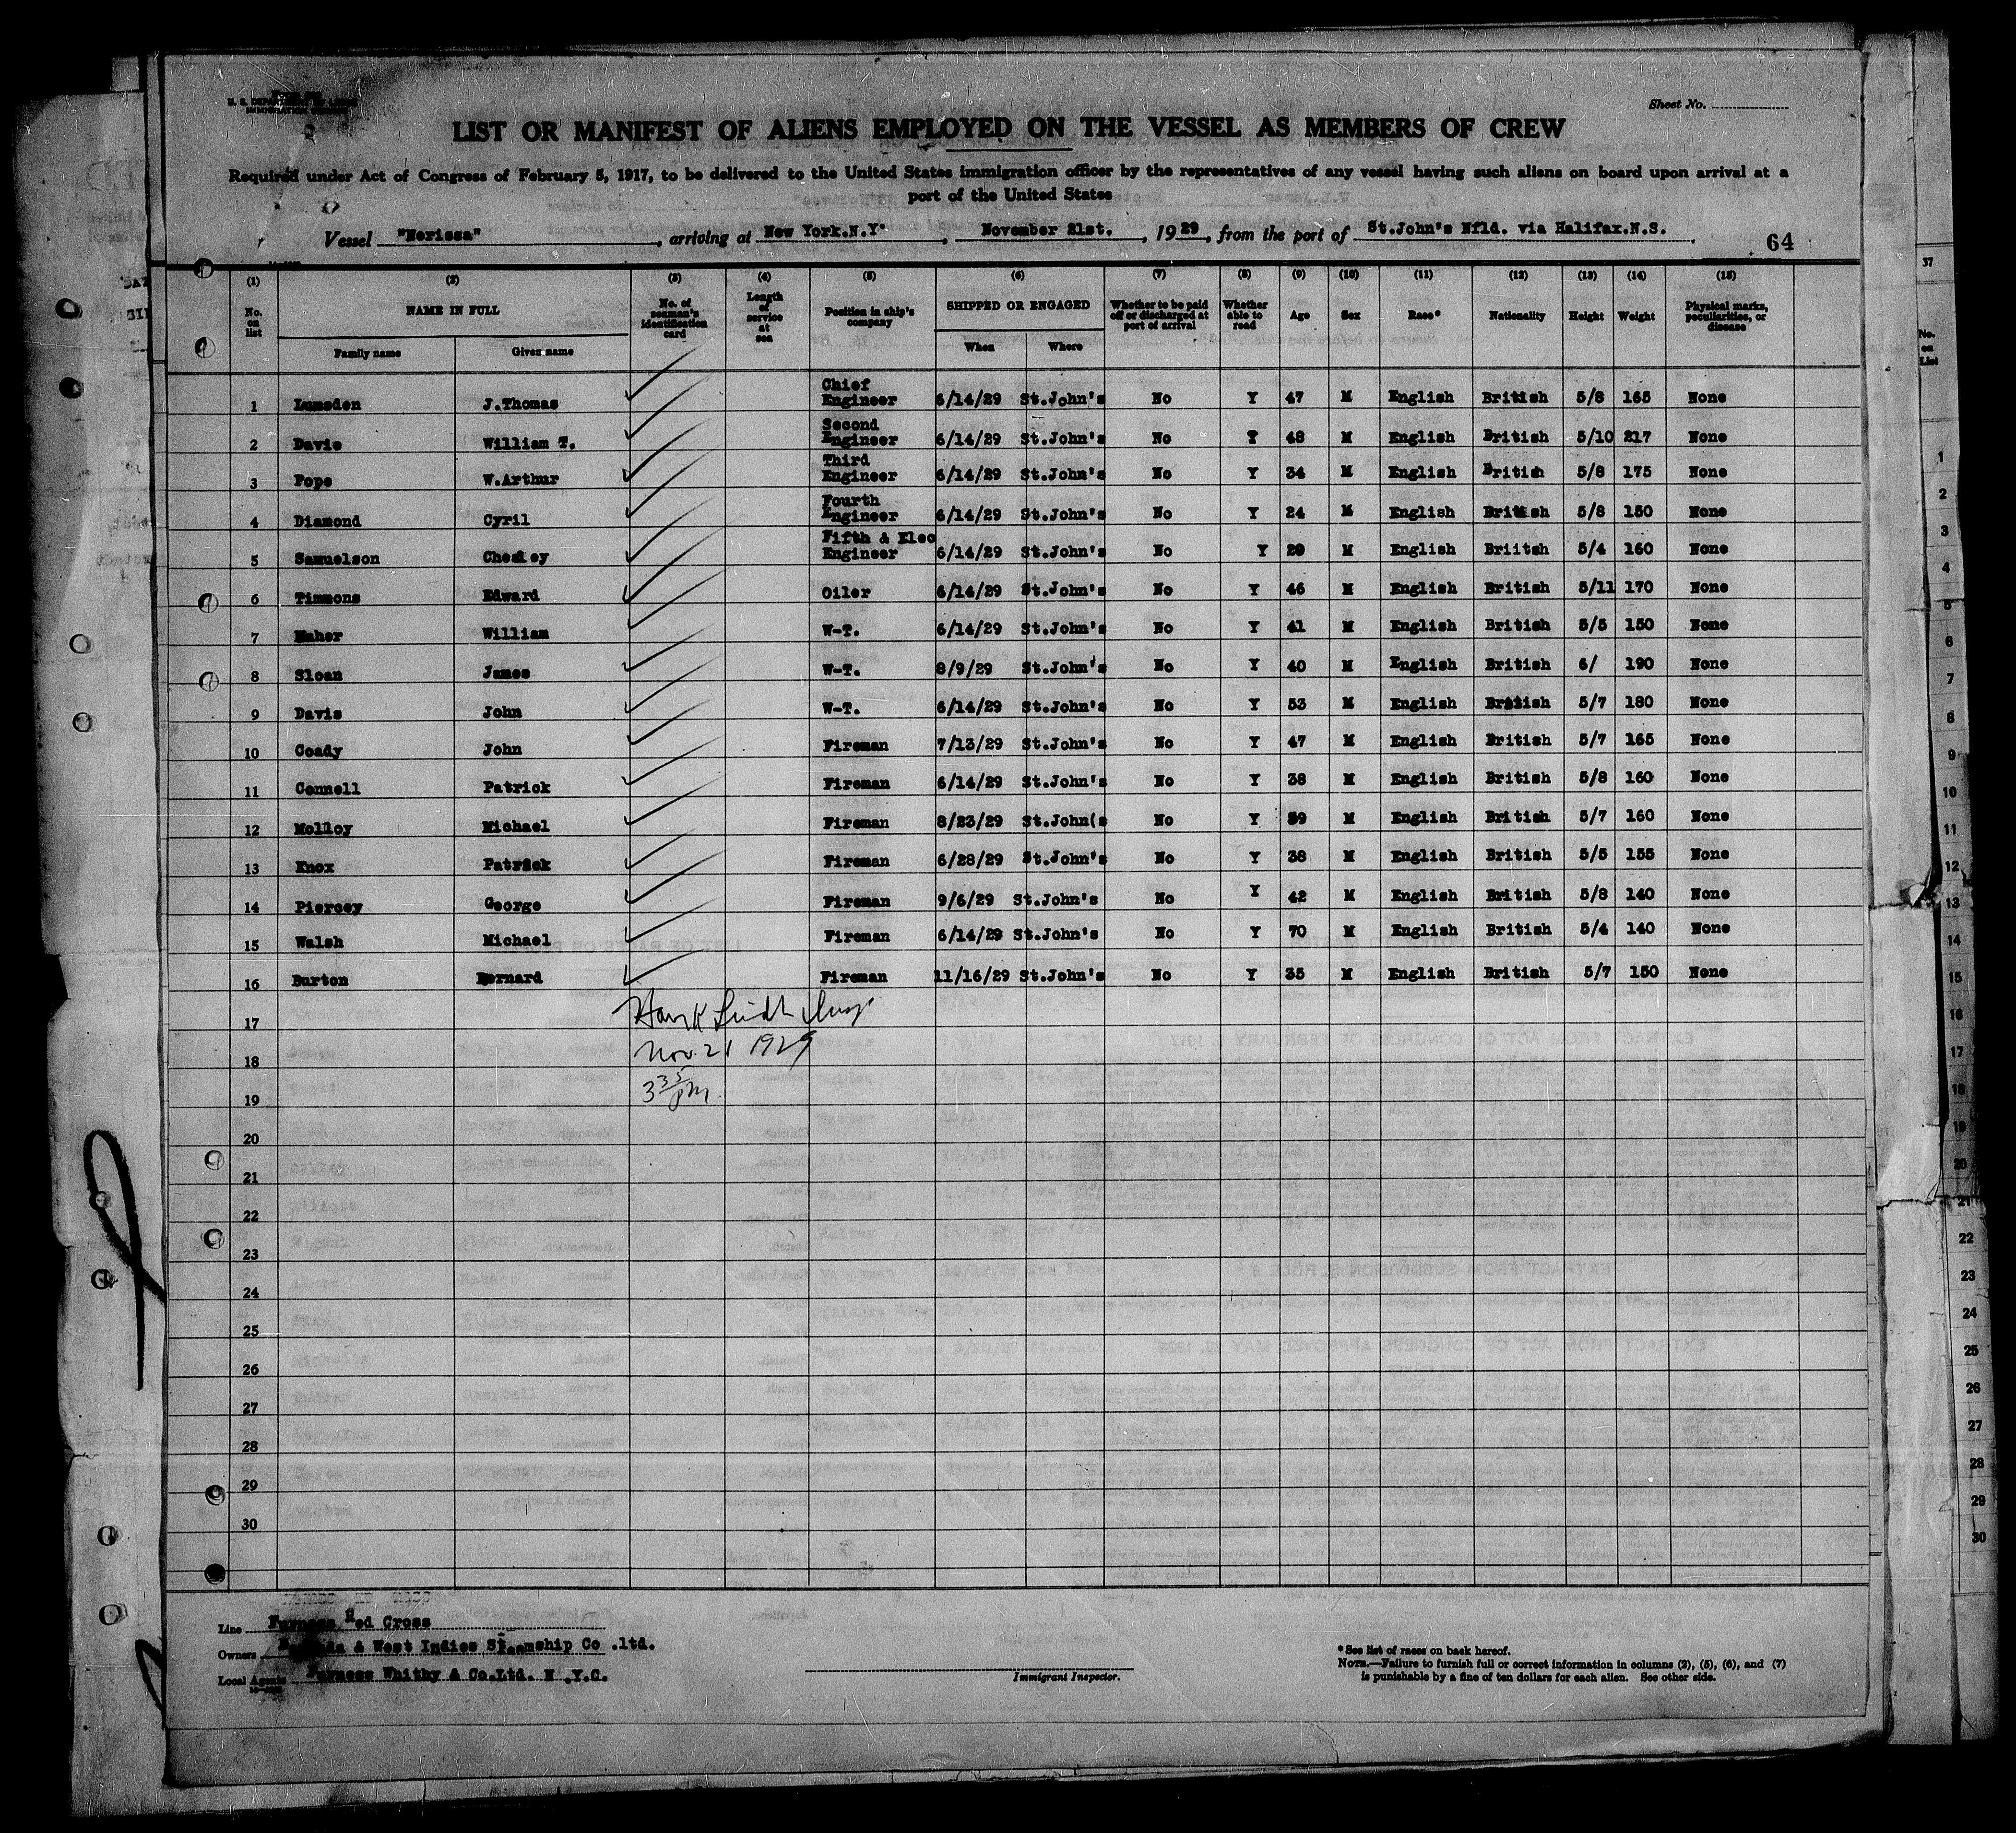 U. S. DEPARTMENT OF LABOR
IMMIGRATION SERVICE
Sheet No.
LIST OR MANIFEST OF ALIENS EMPLOYED ON THE VESSEL AS MEMBERS OF CREW
Required under Act of Congress of February 5, 1917, to be delivered to the United States immigration officer by the representatives of any vessel having such aliens on board upon arrival at a
port of the United States
Vessel "Nerissa", arriving at New York.N.Y., November 21st., 1929, from the port of St.John's Nfld. via Halifax.N.S.
64
(1) (2) (3) (4) (5) (6) (7) (8) (9) (10) (11) (12) (13) (14) (15)
No. on list NAME IN FULL Family name Given name No. of seaman's identification card Length of service at sea Position in ship's company SHIPPED OR ENGAGED When Where Whether to be paid off or discharged at port of arrival Whether able to read Age Sex Race* Nationality Height Weight Physical marks, peculiarities, or disease
1 Lumsden J.Thomas Chief Engineer 6/14/29 St.John's No Y 47 M English British 5/8 165 None
2 Davis William T. Second Engineer 6/14/29 St.John's No Y 48 M English British 5/10 217 None
3 Pope W.Arthur Third Engineer 6/14/29 St.John's No Y 34 M English British 5/8 175 None
4 Diamond Cyril Fourth Engineer 6/14/29 St.John's No Y 24 M English British 5/8 150 None
5 Samuelson Chesley Fifth & Elec Engineer 6/14/29 St.John's No Y 29 M English Briitsh 5/4 160 None
6 Timmons Edward Oiler 6/14/29 St.John's No Y 46 M English British 5/11 170 None
7 Maher William W-T. 6/14/29 St.John's No Y 41 M English British 5/5 150 None
8 Sloan James W-T. 8/9/29 St.John's No Y 40 M English British 6/ 190 None
9 Davis John W-T. 6/14/29 St.John's No Y 53 M English British 5/7 180 None
10 Coady John Fireman 7/13/29 St.John's No Y 47 M English British 5/7 165 None
11 Connell Patrick Fireman 6/14/29 St.John's No Y 38 M English British 5/8 160 None
12 Molloy Michael Fireman 8/23/29 St.John(s No Y 39 M English British 5/7 160 None
13 Knox Patrick Fireman 6/28/29 St.John's No Y 38 M English British 5/5 155 None
14 Piercey George Fireman 9/6/29 St.John's No Y 42 M English British 5/8 140 None
15 Walsh Michael Fireman 6/14/29 St.John's No Y 70 M English British 5/4 140 None
16 Burton Bernard Fireman 11/16/29 St.John's No Y 35 M English British 5/7 150 None
17
Nov. 21 1929
18
3 35 PM
19
20
21
22
23
24
25
26
27
28
29
30
Line Furness Red Cross
Owners & West Indies Steamship Co .ltd.
Local Agents Furness Whithy & Co.Ltd. N .Y.C.
Immigrant Inspector.
* See list of races on back hereof.
NOTE.—Failure to furnish full or correct information in columns (2), (5), (6), and (7)
is punishable by a fine of ten dollars for each alien. See other side.
37
No. on List
1
2
3
4
5
6
7
8
9
10
11
12
13
14
15
16
17
18
19
20
21
22
23
24
25
26
27
28
29
30